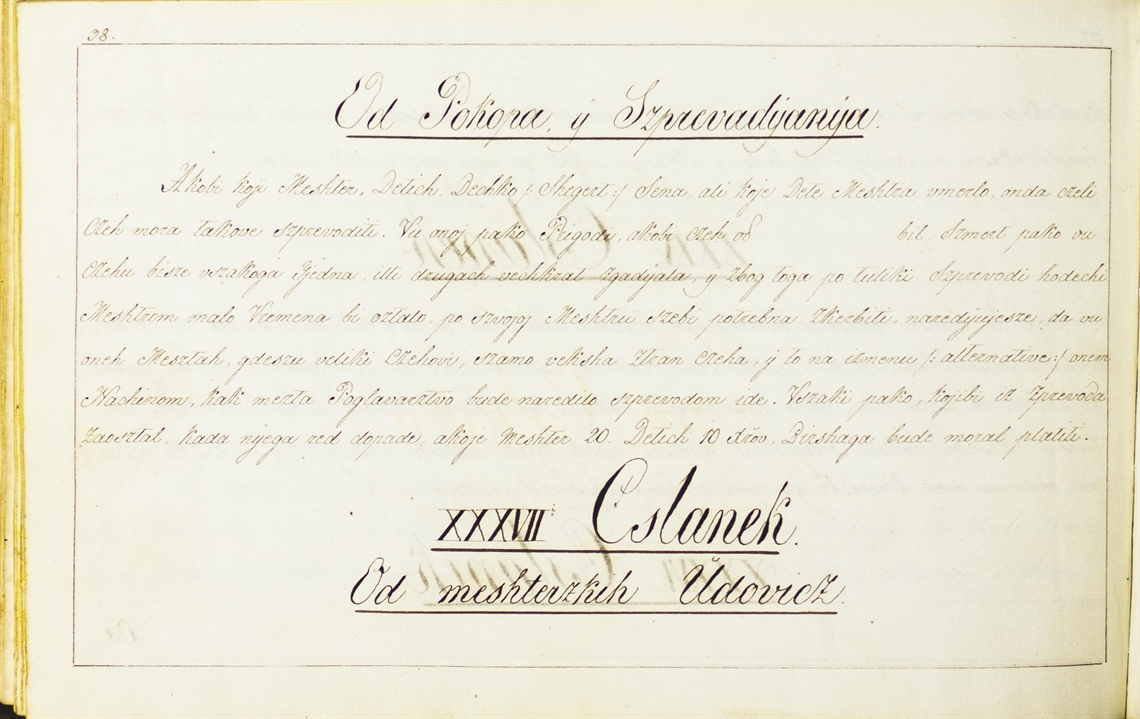 38.
Od Pokopa, y Szprevadjanja.
Akobi koji Meshter, Detich, Dechko /: Shegert :/ Sena, ali koje Dete Meshtra vmerlo, onda czeli
Czeh mora takove szprevoditi. Vu onoj pako Prigodi, akobi Czeh od bil, Szmert pako vu
Czehu bisze vszakoga Tjedna, illi drugach vechkrat zgadjala, y zbog toga po tuliki Szprevodi hodechi
Meshtrom malo Vremena bi oztalo, po szvojoj Meshtrii szebi potrebna zkerbiti, naredjujesze, da vu
oneh Mesztah, gdeszu veliki Czehovi, szamo veksha Ztran Czeha, y to na izmenu /: alternative :/ onem
Nachinom, kak mezta Poglavarztvo bude naredilo szprevodom ide. Vszaki pako, kojibi iz Zprevoda
zaosztal, kada njega red dopade, akoje Meshter 20. Detich 10 xrov, Birshaga bude moral platiti.
XXXVII: Cslanek.
Od meshterzkih Udovicz.